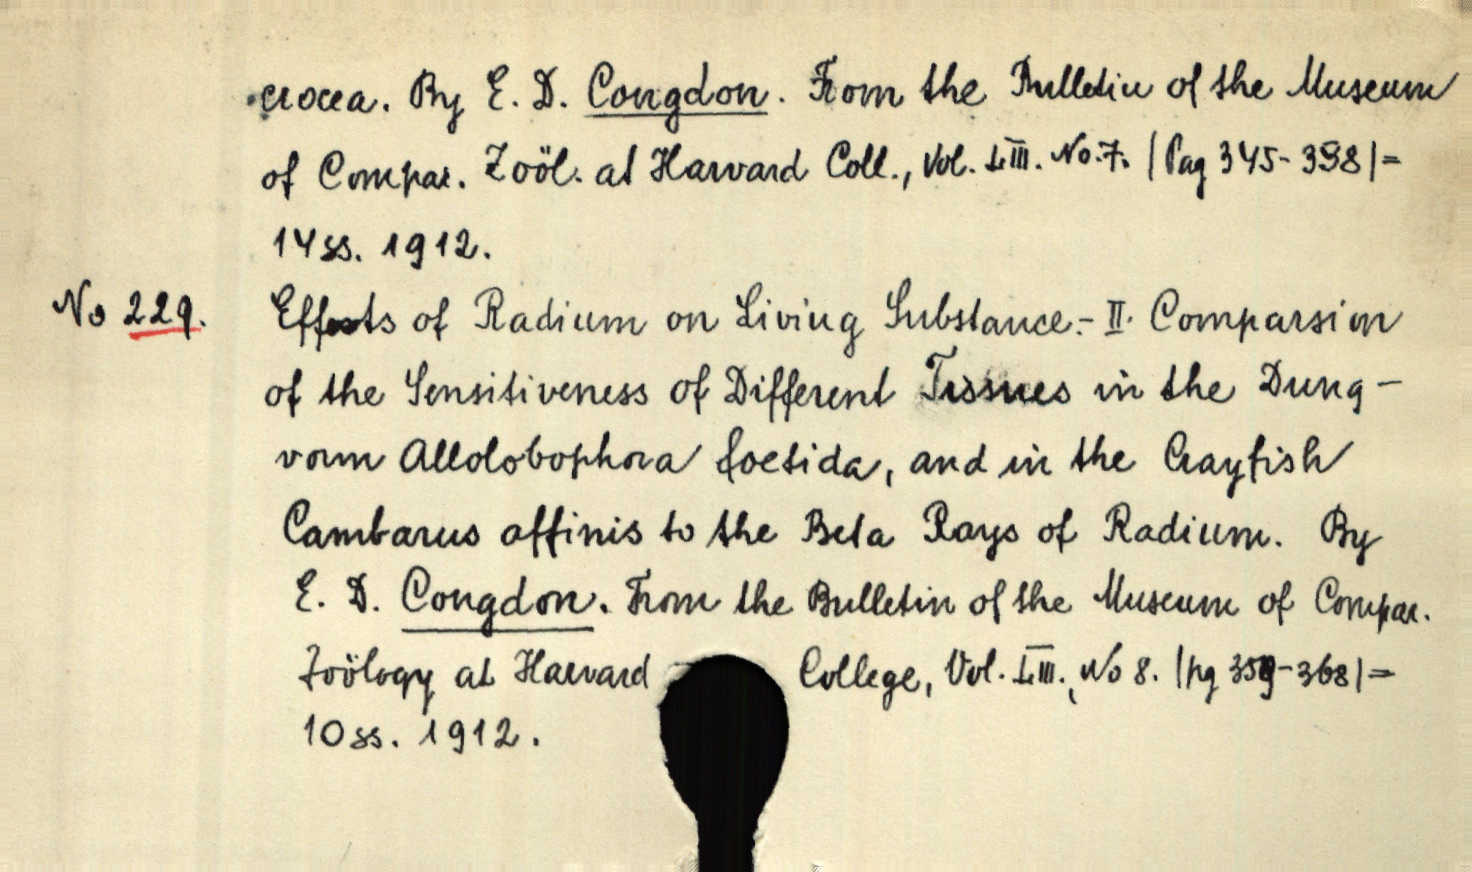 crocea. By E. D. Congdon. From the Bulletin of the Museum
of Compar. Zoöl. at Harvard Coll., Vol. LIII. No. 7. |Pag 345-398|=
14 ss. 1912.
No 229. Effects of Radium on Living Substance.- II. Comparsion
of the Sensitiveness of Different Tissues in the Dung-
vorm Allolobophora foetida, and in the Crayfish
Cambarus affinis to the Beta Rays of Radium. By
E. D. Congdon. From the Bulletin of the Museum of Compar.
Zoölogy at Harvard College, Vol. LIII., No 8. |pg 359-368|=
10 ss. 1912.